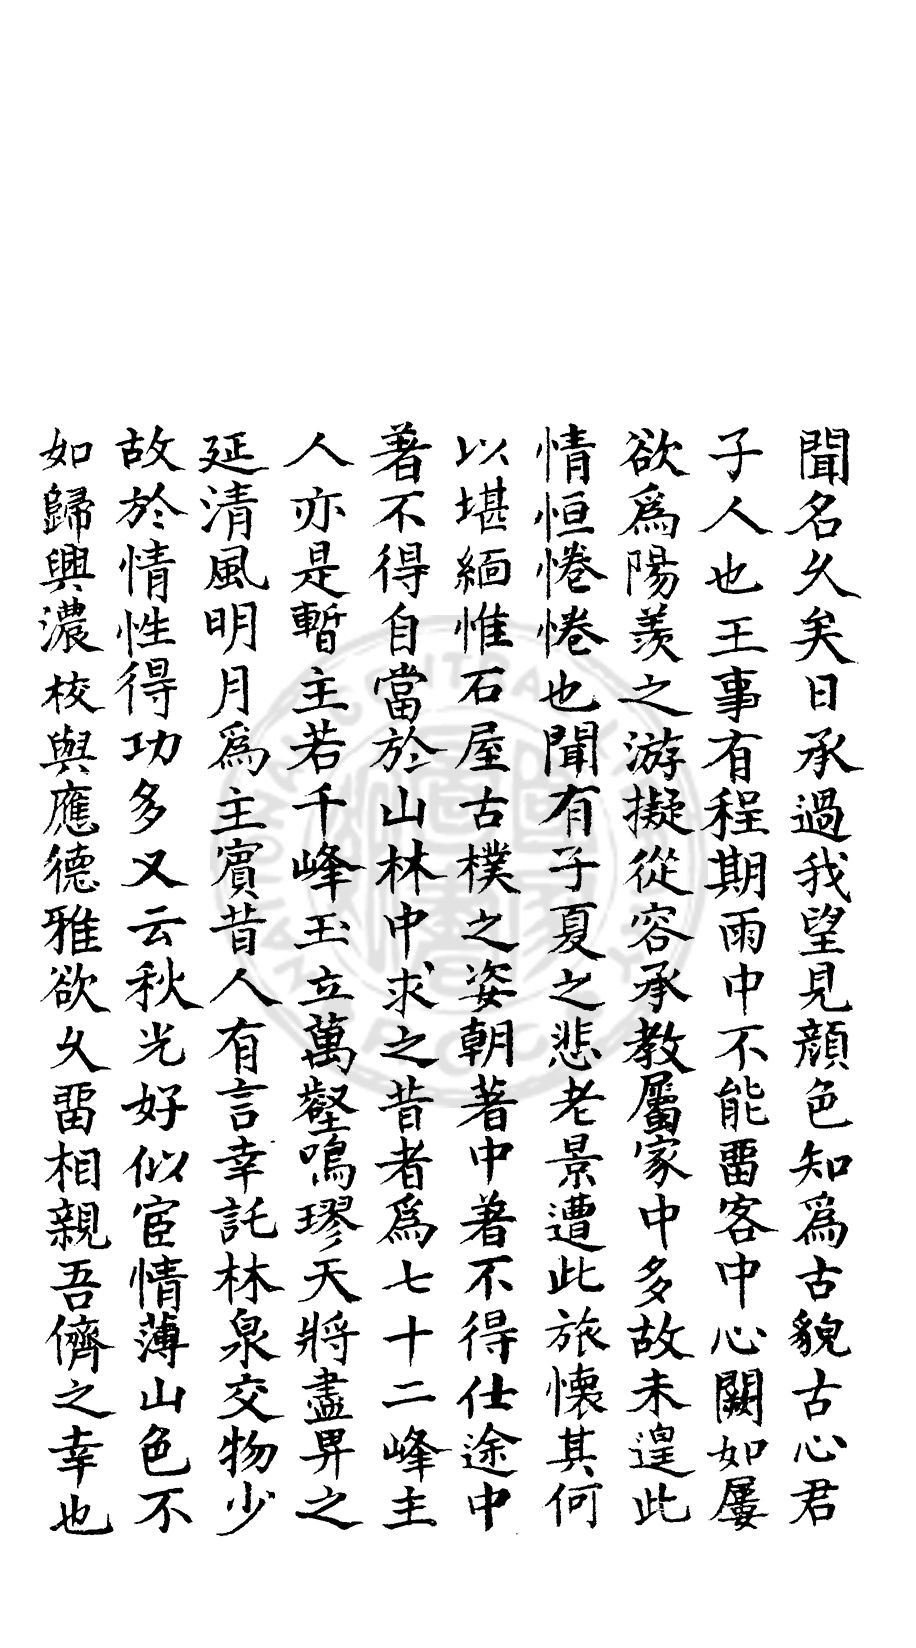 聞名久矣日承過我望見顏色知爲古貌古心君
子人也王事有程期雨中不能畱客中心闕如屢
欲爲陽羨之游擬從容承教屬家中多故未遑此
情恒惓惓也聞有子夏之悲老景遭此旅懷其何
以堪緬惟石屋古樸之姿朝著中著不得仕途中
著不得自當於山林中求之昔者爲七十二峰主
人亦是暫主若千峰玉立萬壑鳴璆天將盡畀之
延清風明月爲主賓昔人有言幸託林泉交物少
故於情性得功多又云秋光好似宦情薄山色不
如歸興濃校與應德雅欲久畱相親吾儕之幸也